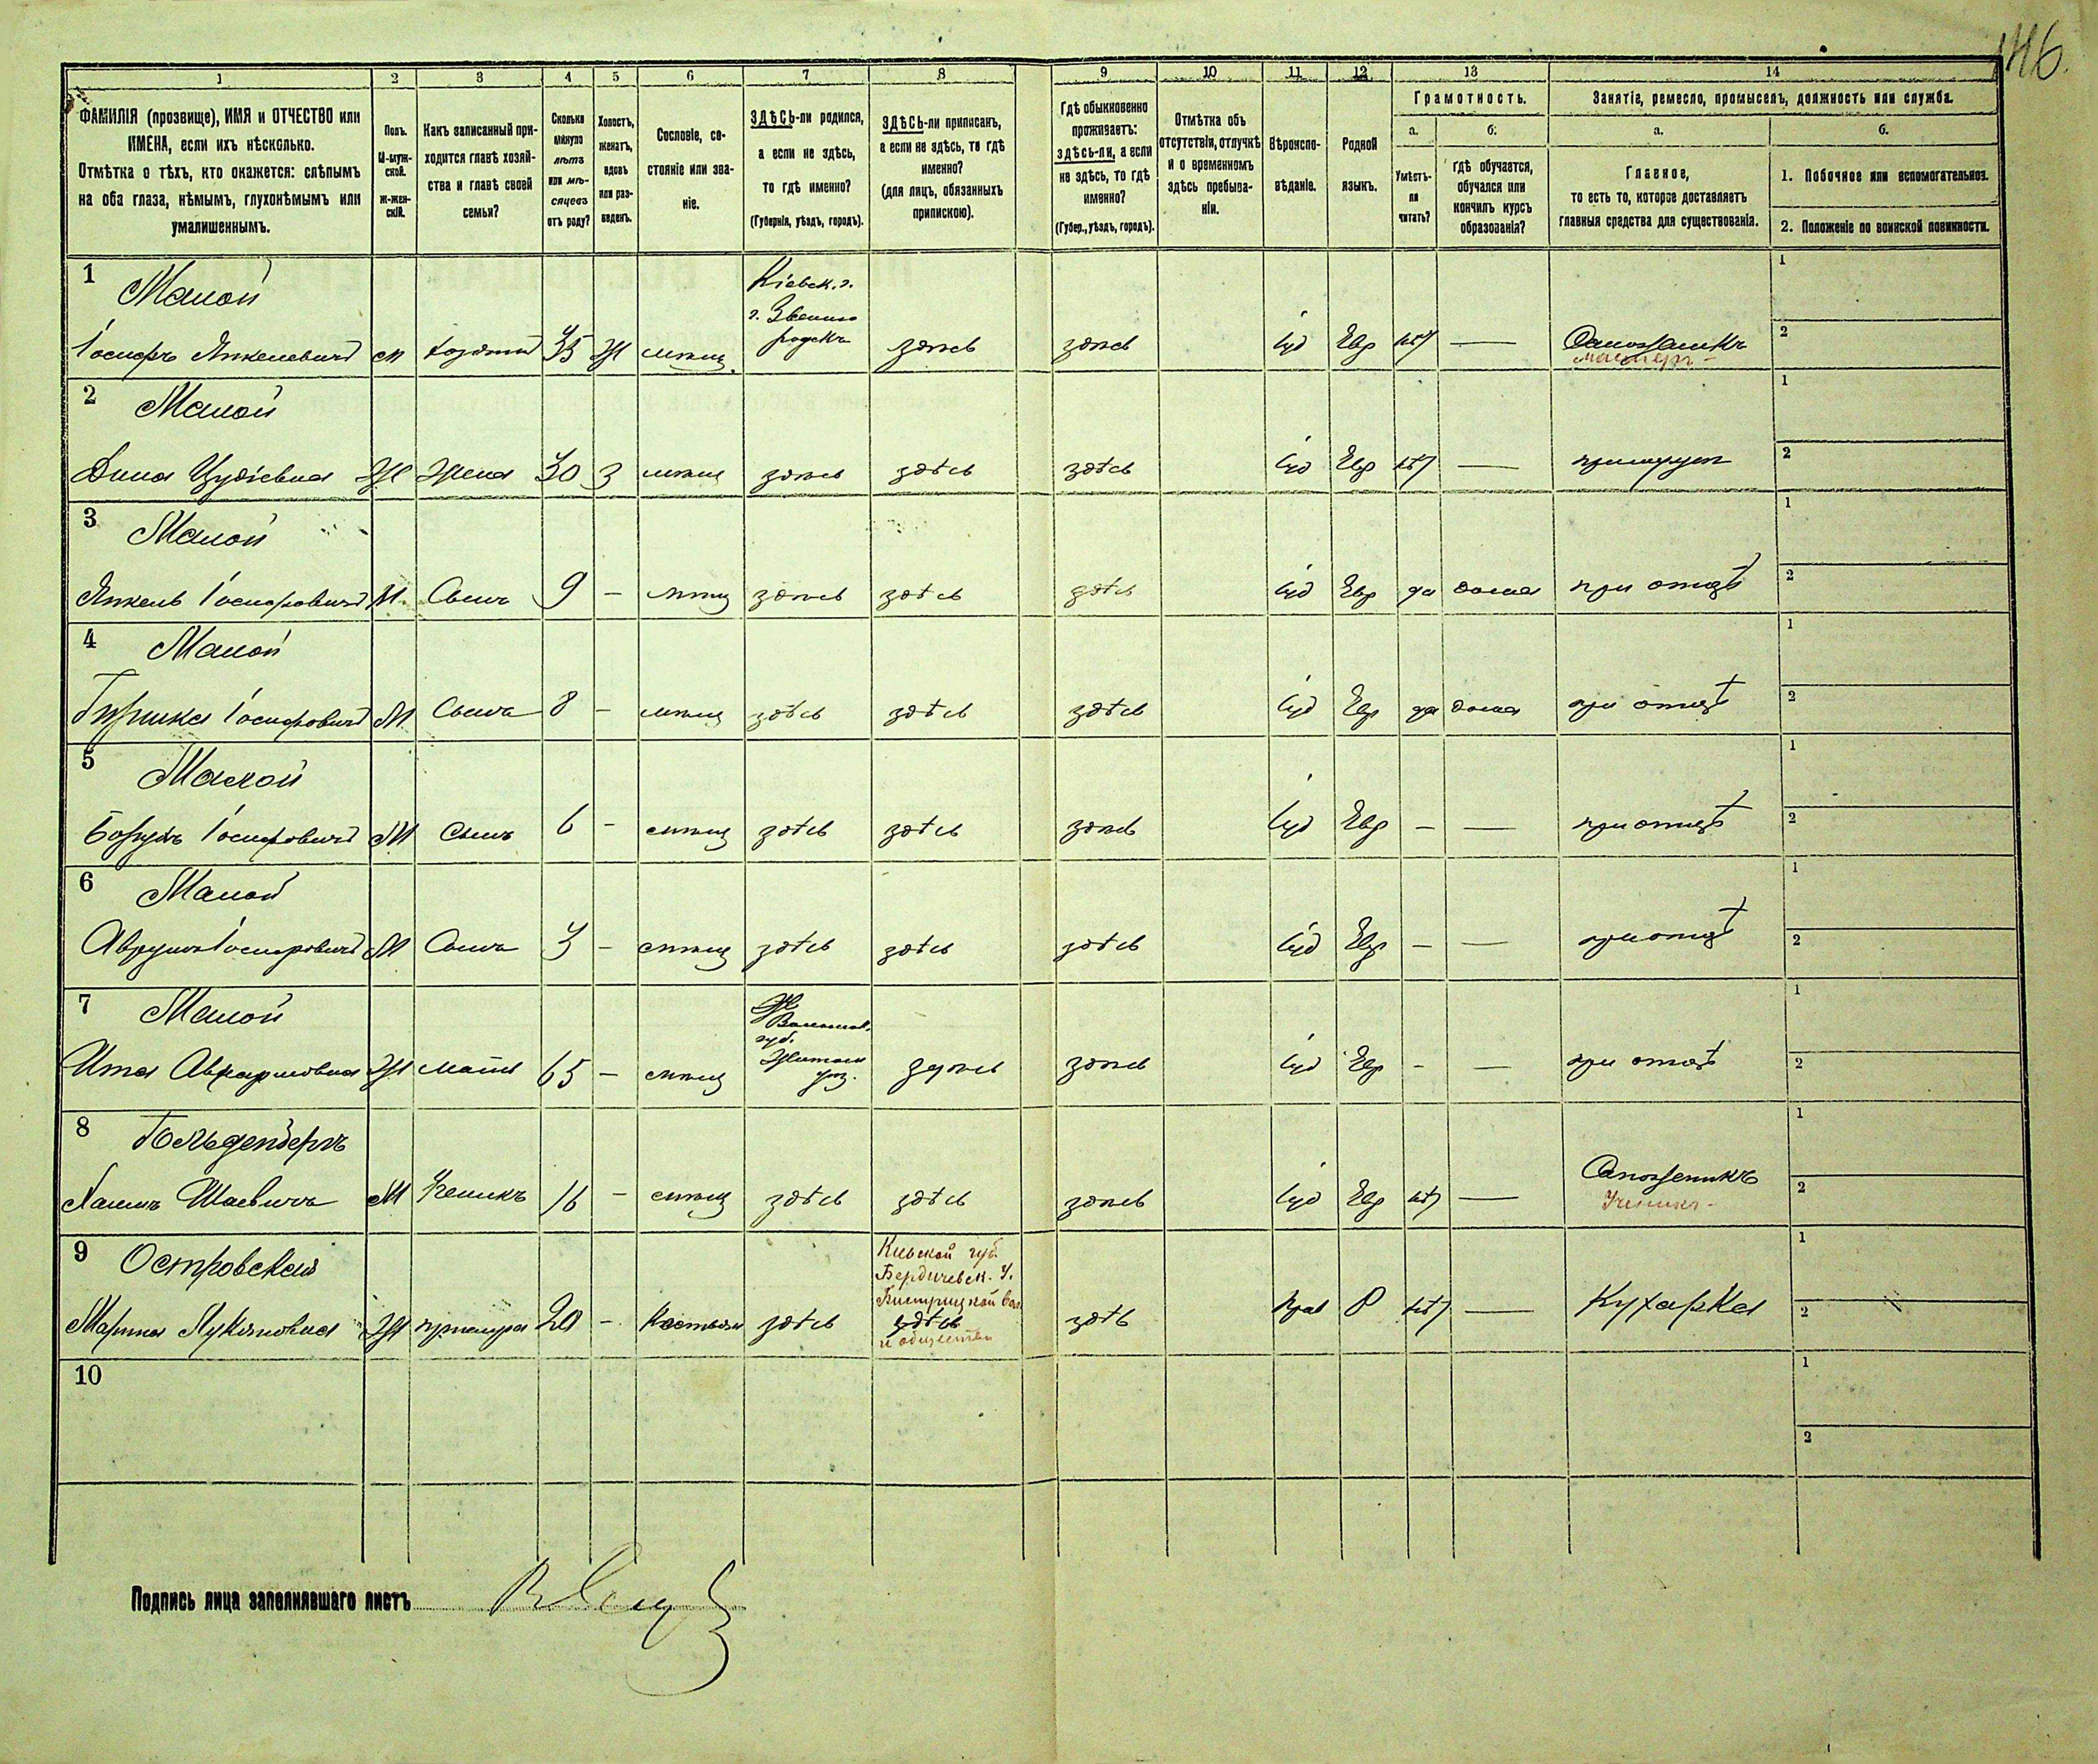 146.
1 2 3 4 5 6 7 8 9 10 11 12 13 14
ФАМИЛІЯ (прозвище), ИМЯ и ОТЧЕСТВО или
ИМЕНА, если ихъ нѣсколько.
Отмѣтка о тѣхъ, кто окажется: слѣпымъ
на оба глаза, нѣмымъ, глухонѣмымъ или
умалишеннымъ.
Полъ.
М-муж-
ской.
ж-жен-
скій.
Какъ записанный при-
ходится главѣ хозяй-
ства и главѣ своей
семьи?
Сколько
минуло
лѣтъ
или мѣ-
сяцевъ
отъ роду?
Холостъ,
женатъ,
вдовъ
или раз-
веденъ.
Сословіе, со-
стояніе или зва-
ніе.
ЗДѢСЬ-ли родился,
а если не здѣсь,
то гдѣ именно?
(Губернія, уѣздъ, городъ).
ЗДѢСЬ-ли приписанъ,
а если не здѣсь, то гдѣ
именно?
(для лицъ, обязанныхъ
припискою).
Гдѣ обыкновенно
проживаетъ:
здѣсь-ли, а если
не здѣсь, то гдѣ
именно?
(Губер., уѣздъ, городъ).
Отмѣтка объ
отсутствіи, отлучкѣ
и о временномъ
здѣсь пребыва-
ніи.
Вѣроиспо-
вѣданіе.
Родной
языкъ.
Грамотность.
а.
Умѣетъ-
ли
читать?
б.
гдѣ обучается,
обучался или
кончилъ курсъ
образованія?
Занятіе, ремесло, промыселъ, должность или служба.
а.
Главное,
то есть то, которое доставляетъ
главныя средства для существованія.
б.
1. Побочное или вспомогательное.
2. Положеніе по воинской повинности.
1 Малой
Кіевск. г.
г. Звенино
родскъ
Іосифъ Янкелевичъ м хозяинъ 35 Ж мѣщ. здѣсь здѣсь іуд Евр нѣт — Сапожникъ
мастеръ -
1
2
2 Малой
Дина Ж Жена 30 З мѣщ здѣсь здѣсь здѣсь іуд Евр нѣт — при муже
1
2
3 Малой
Янкель Іосифовичъ М. Сынъ 9 - мѣщ здѣсь здѣсь здѣсь іуд Евр да дома при отцѣ
1
2
4 Малой
Гершко Іосифовичъ М Сынъ 8 - мѣщ здѣсь здѣсь здѣсь іуд Евр да дома при отцѣ
1
2
5 Малой
Борухъ Іосифовичъ М Сынъ 6 - мѣщ здѣсь здѣсь здѣсь іуд Евр - — при отцѣ
1
2
6 Малой
Аврумъ Іосифовичъ М Сынъ 3 - мѣщ здѣсь здѣсь здѣсь іуд Евр - — при отцѣ
1
2
7 Малой
Волынск.
губ.
Житом
уѣз.
Ита Авраамовна Ж мать 65 - мѣщ здѣсь здѣсь іуд Евр - — при отцѣ
1
2
8 Гольденберъ
Хаимъ Шаевичъ М Ученикъ 16 - мѣщ здѣсь здѣсь здѣсь іуд Евр нѣт — Сапожникъ
Ученикъ -
1
2
9 Островская
Киевской губ.
Бердичевск. у.
Бистрицкой вол.
здѣсь
и общества
Марина Лукяновна Ж прислуга 20 - Крестьян здѣсь здѣь Прав Р нѣт — Кухарка
1
2
10
1
2
Подпись лица заполнявшаго листъ